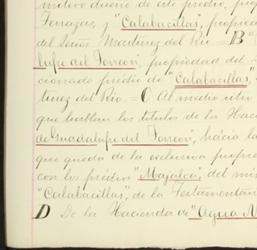 mitivo dueño de este predio, prop
Terrazas, y "Calabacillas", propieda
del Señor Martinez del Rio. = B "
lupe del Torreon", propiedad del
cionado predio de "Calabacillas",
tinez del Rio. = C Al medio sitio
que hablan los titulos de la Hac
de Guadalupe del Torreon", hácia la
que queda de la exclusiva propie
con los predios "Majalca", del mis
"Calabacitas", de la Testamentar
D De la Hacienda de "Agua N